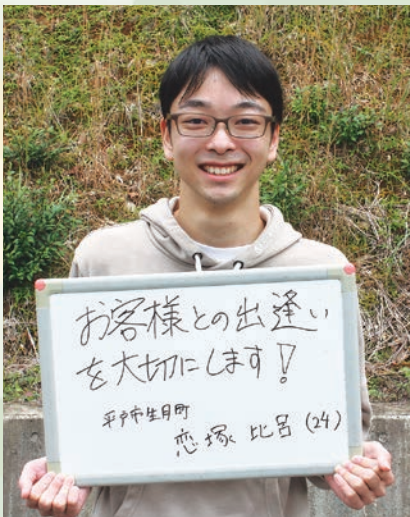 お客様との出逢い
を大切にします!
平戸市生月町
恋塚 比呂 (24)